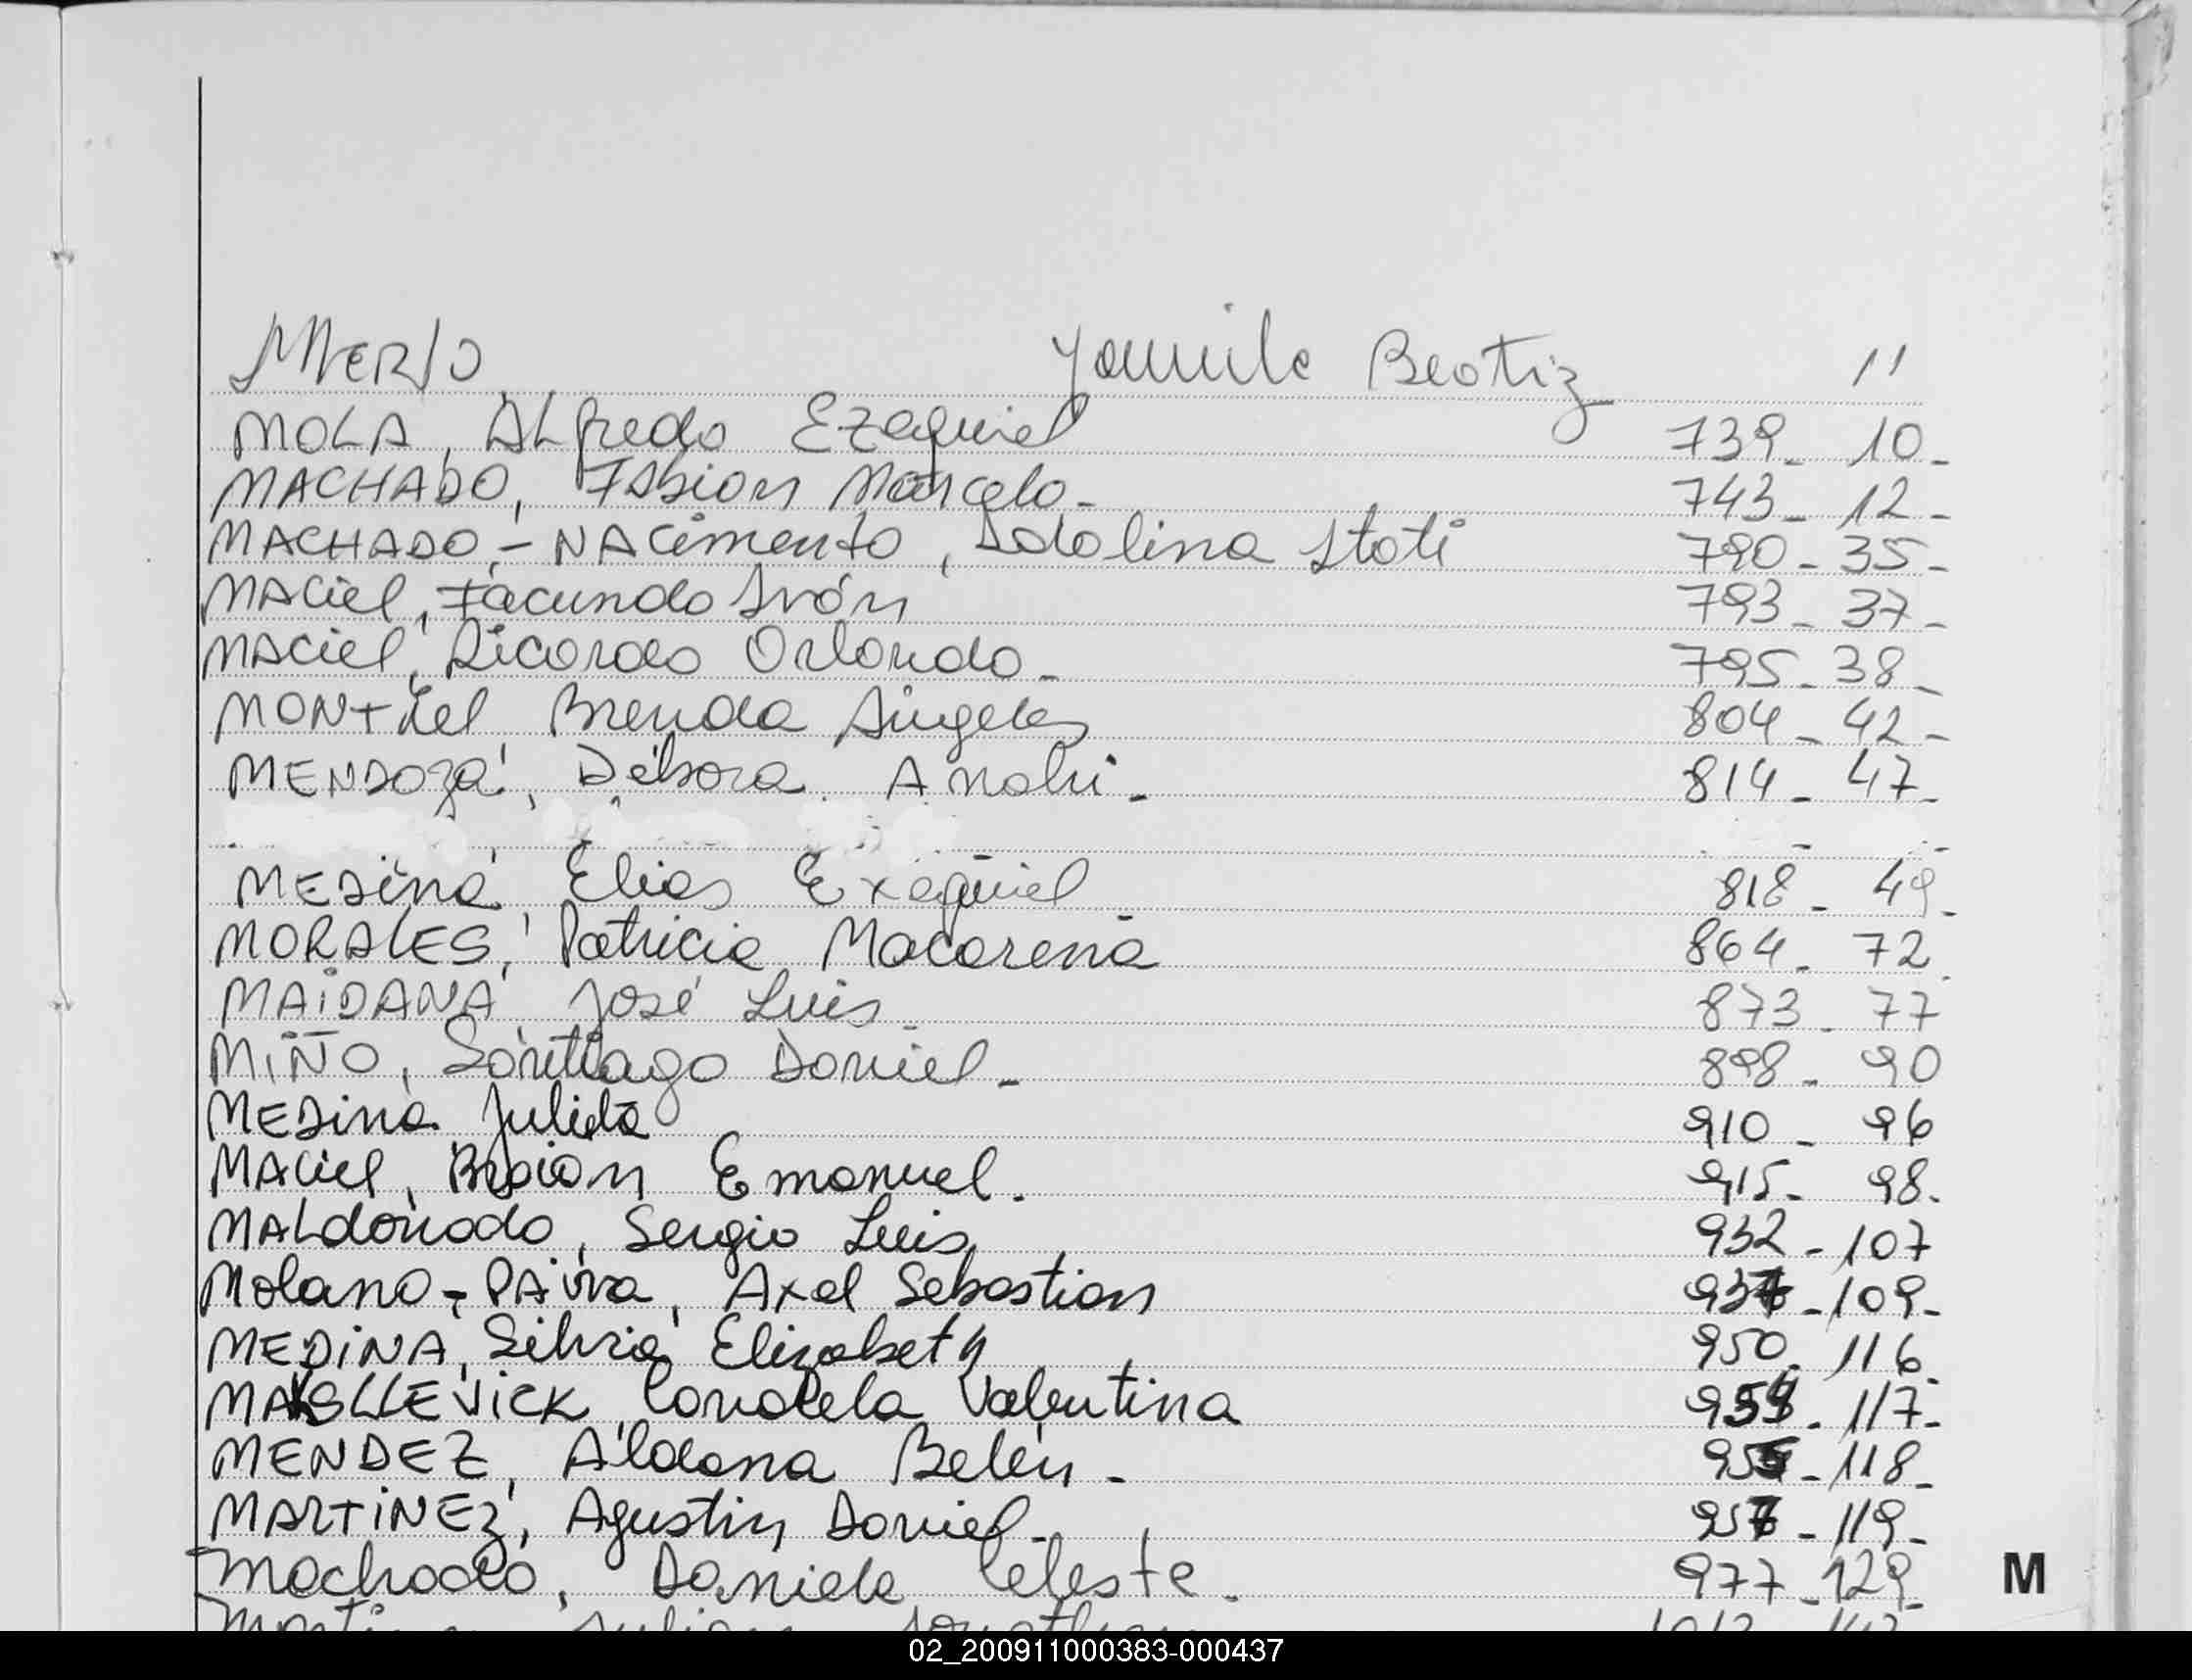 Merlo Yamile Beatiz 11
MOLA, Alfredo Ezequiel 739_ 10_
MACHADO, Fabian Marcelo_ 743_ 12_
MACHADO - NAcimento, Idolina Itati 790_ 35_
MACiel, Facundo Iván 793_ 37_
MACiel, Ricardo Orlando_ 795_ 38_
MONtiel Brenda Ángeles 804_ 42_
MENDOza, Débora Anahi_ 814_ 47_
MEDina Elias Exequiel_ 818_ 49_
MORALES, Patricia Macarena 864_ 72_
MAiDANA José Luis_ 873_ 77
MiÑO, Santtiago Daniel_ 898_ 90
MEDina Julieta 910_ 96
MACiel, Braian Emanuel. 915_ 98.
MALdonado, Sergio Luis 932_ 107
Molano-PAiva, Axel Sebastian 937_109_
MEDiNA, Silvia Elizabeth 950_ 116_
Candela Valentina 954_ 117_
MENDEZ, Aldana Belén_ 955_118_
MARTiNEz, Agustin Daniel_ 957_119_
Machado, Daniela Celeste_ 977_129_
M
02_200911000383-000437